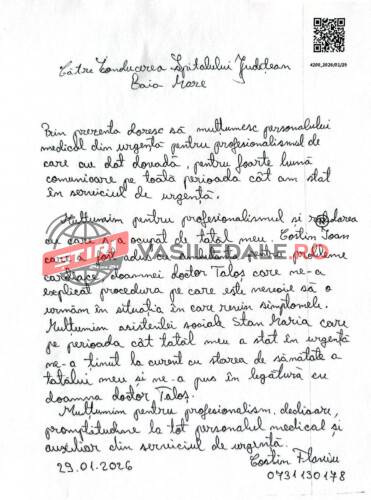 4200_2026/01/29
Către Conducerea Spitalului Județean
Baia Mare
Prin prezenta doresc să mulțumesc personalului
medical din urgență pentru profesionalismul de
care au dat dovadă, pentru foarte bună
comunicare pe toată perioada cât am stat
în serviciul de urgență.
Mulțumim pentru profesionalismul și răbdarea
cu care s-a ocupat de tatăl meu Costin Ioan
care a fost adus cu ambulanța probleme
cardiace doamnei doctor Taloș care ne-a
explicat procedura pe care este nevoie să o
urmăm în situația în care revin simptomele.
Mulțumim asistentei sociale Stan Maria care
pe perioada cât tatăl meu a stat în urgență
ne-a ținut la curent cu starea de sănătate a
tatălui meu și ne-a pus în legătură cu
doamna doctor Taloș.
Mulțumim pentru profesionalism, dedicare,
promptitudine la tot personalul medical și
auxiliar din serviciul de urgență.
29.01.2026 Costin
0731130178
VASILEDALE.RO